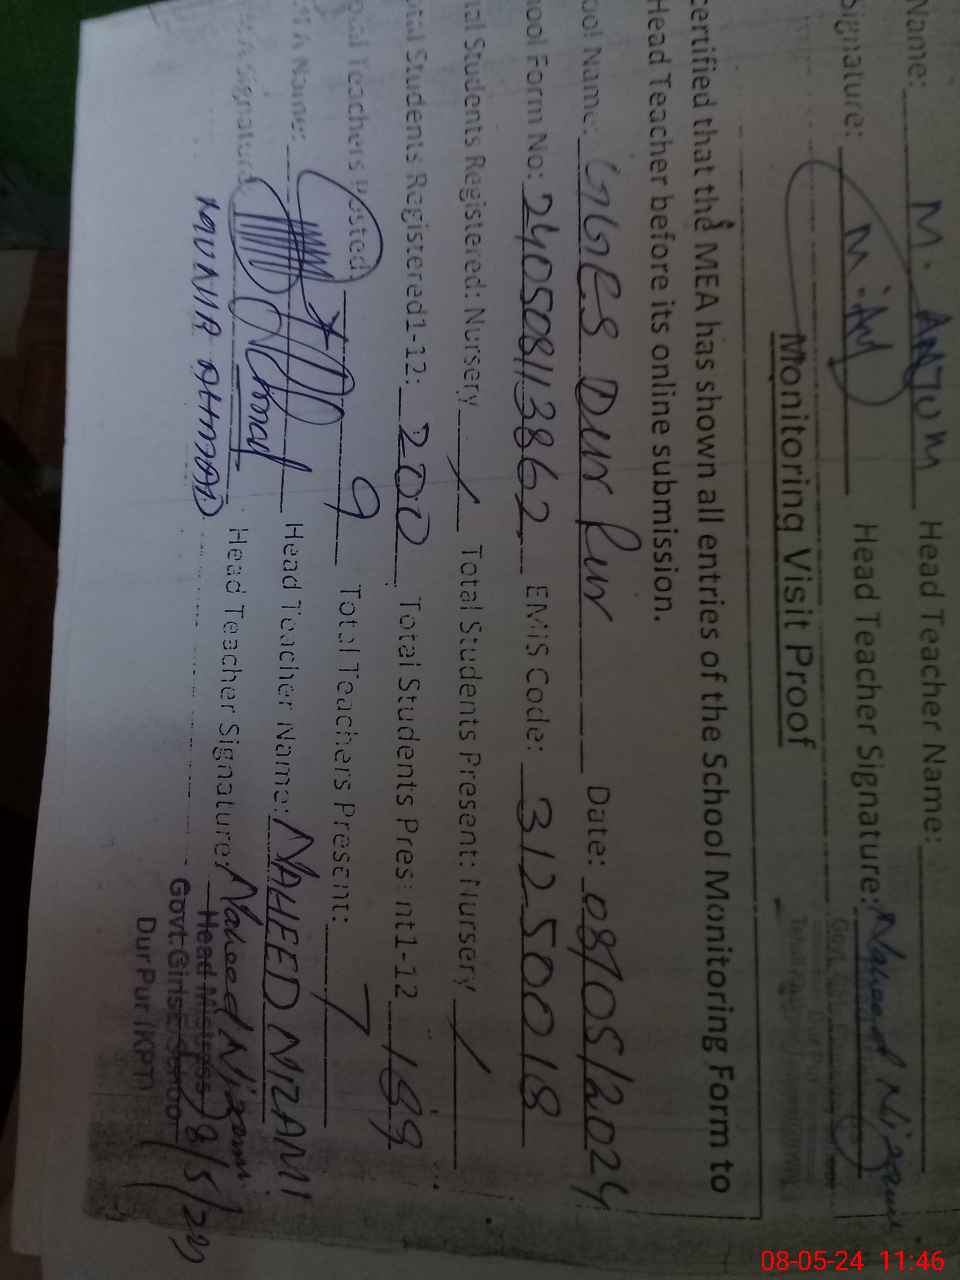 Name: M. ANJUM Head Teacher Name:
Signature: M. AM Head Teacher Signature: Naheed Nizami
Monitoring Visit Proof
certified that the MEA has shown all entries of the School Monitoring Form to
Head Teacher before its online submission.
ool Name: GGES Dur Pur Date: 08/05/2024
ool Form No: 240508113862 EMIS Code: 31250018
al Students Registered: Nursery / Total Students Present: Nursery /
otal Students Registered1-12: 200 Total Students Present1-12 189
Total Teachers Posted: 9 Total Teachers Present: 7
MEA Name: Head Teacher Name: NAHEED NIZAMI
MEA Signature Head Teacher Signature: Naheed Nizami
AHMAD
Head Mistress
Govt Girls E/School 8/5/24
Dur Pur (KPT)
08-05-24 11:46